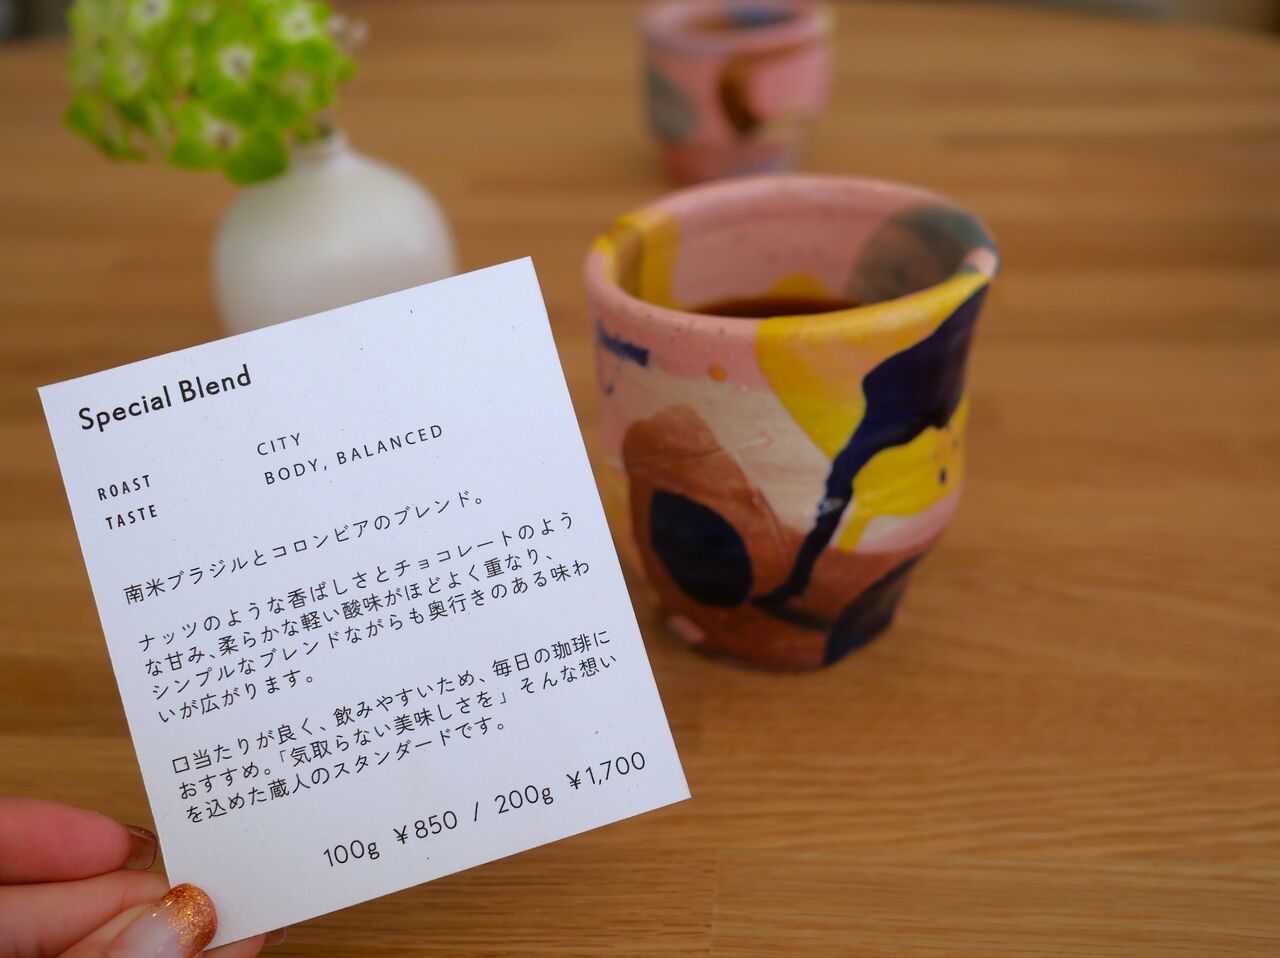 Special Blend
ROAST CITY
TASTE BODY, BALANCED
南米ブラジルとコロンビアのブレンド。
ナッツのような香ばしさとチョコレートのよう
な甘み、柔らかな軽い酸味がほどよく重なり、
シンプルなブレンドながらも奥行きのある味わ
いが広がります。
口当たりが良く、飲みやすいため、毎日の珈琲に
おすすめ。「気取らない美味しさを」そんな想い
を込めた蔵人のスタンダードです。
100g ¥850 / 200g ¥1,700